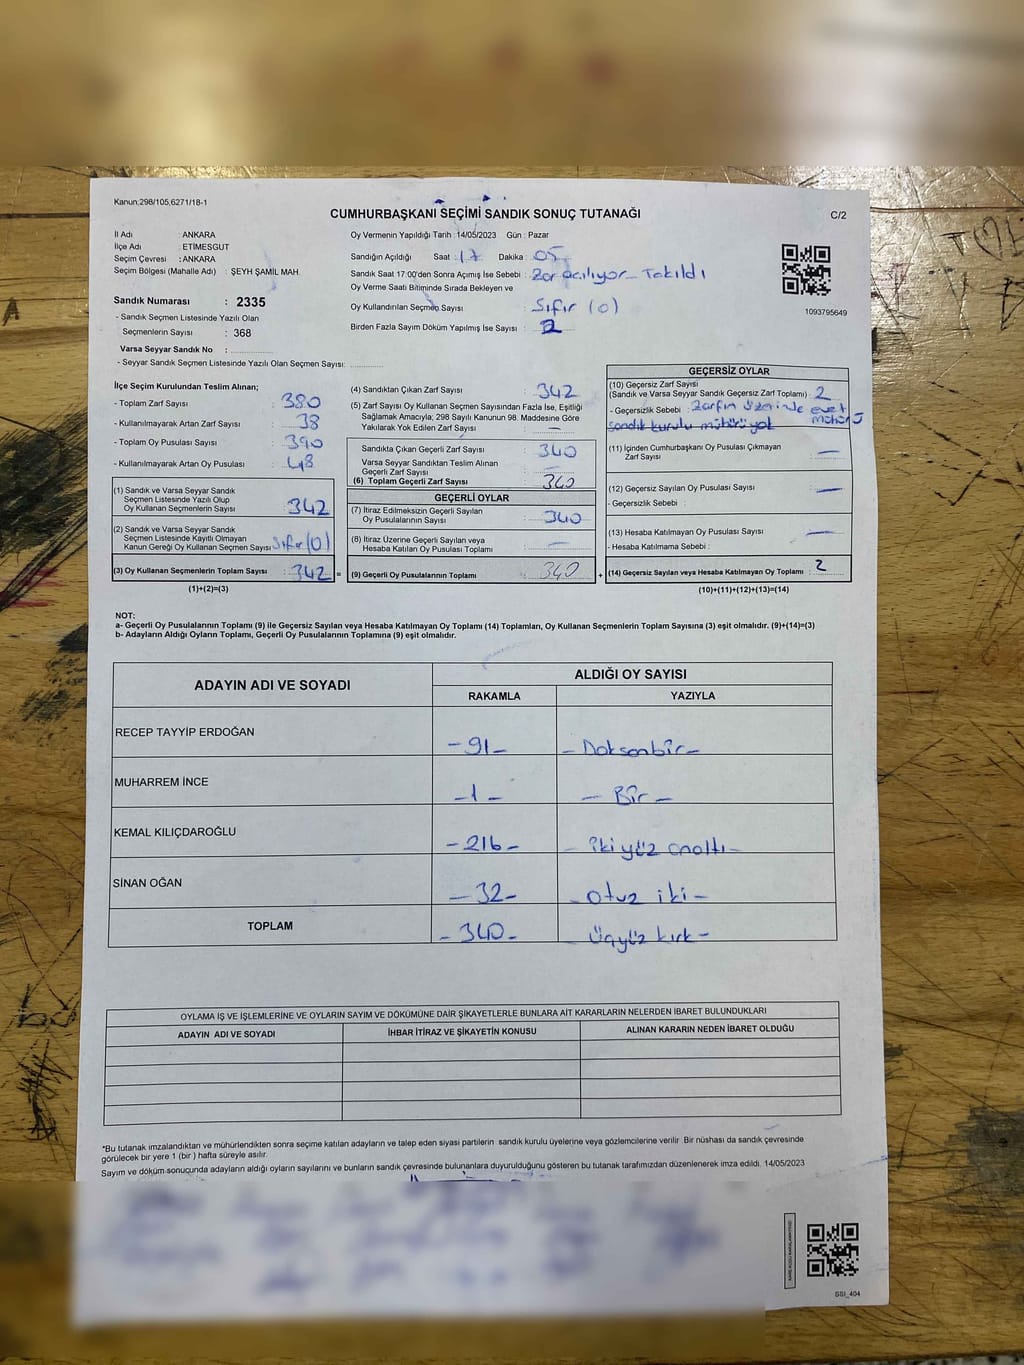 Kanun;298/105,6271/18-1
CUMHURBAŞKANI SEÇİMİ SANDIK SONUÇ TUTANAĞI
C/2
İl Adı : ANKARA
İlçe Adı : ETİMESGUT
Seçim Çevresi : ANKARA
Seçim Bölgesi (Mahalle Adı) : ŞEYH ŞAMİL MAH.
Sandık Numarası : 2335
- Sandık Seçmen Listesinde Yazılı Olan
Seçmenlerin Sayısı : 368
Varsa Seyyar Sandık No :
- Seyyar Sandık Seçmen Listesinde Yazılı Olan Seçmen Sayısı:
Oy Vermenin Yapıldığı Tarih :14/05/2023 Gün : Pazar
Sandığın Açıldığı Saat : 17 Dakika : 05
Sandık Saat 17:00'den Sonra Açımış İse Sebebi : Zor açılıyor Takıldı
Oy Verme Saati Bitiminde Sırada Bekleyen ve
Oy Kullandırılan Seçmen Sayısı : Sıfır (0)
Birden Fazla Sayım Döküm Yapılmış İse Sayısı : 2
1093795649
İlçe Seçim Kurulundan Teslim Alınan;
- Toplam Zarf Sayısı : 380
- Kullanılmayarak Artan Zarf Sayısı : 38
- Toplam Oy Pusulası Sayısı : 390
- Kullanılmayarak Artan Oy Pusulası : 48
(1) Sandık ve Varsa Seyyar Sandık
Seçmen Listesinde Yazılı Olup
Oy Kullanan Seçmenlerin Sayısı : 342
(2) Sandık ve Varsa Seyyar Sandık
Seçmen Listesinde Kayıtlı Olmayan
Kanun Gereği Oy Kullanan Seçmen Sayısı : Sıfır (0)
(3) Oy Kullanan Seçmenlerin Toplam Sayısı : 342 =
(1)+(2)=(3)
(4) Sandıktan Çıkan Zarf Sayısı : 342
(5) Zarf Sayısı Oy Kullanan Seçmen Sayısından Fazla İse, Eşitliği
Sağlamak Amacıyla; 298 Sayılı Kanunun 98. Maddesine Göre
Yakılarak Yok Edilen Zarf Sayısı : —
Sandıkta Çıkan Geçerli Zarf Sayısı : 340
Varsa Seyyar Sandıktan Teslim Alınan
Geçerli Zarf Sayısı : —
(6) Toplam Geçerli Zarf Sayısı : 340
GEÇERLİ OYLAR
(7) İtiraz Edilmeksizin Geçerli Sayılan
Oy Pusulalarının Sayısı : 340
(8) İtiraz Üzerine Geçerli Sayılan veya
Hesaba Katılan Oy Pusulası Toplamı : —
(9) Geçerli Oy Pusulalarının Toplamı : 340 +
GEÇERSİZ OYLAR
(10) Geçersiz Zarf Sayısı
(Sandık ve Varsa Seyyar Sandık Geçersiz Zarf Toplamı) : 2
- Geçersizlik Sebebi : Zarfın üzerinde evet mührü
sandık kurulu mühürü yok
(11) İçinden Cumhurbaşkanı Oy Pusulası Çıkmayan
Zarf Sayısı : —
(12) Geçersiz Sayılan Oy Pusulası Sayısı : —
- Geçersizlik Sebebi :
(13) Hesaba Katılmayan Oy Pusulası Sayısı : —
- Hesaba Katılmama Sebebi :
(14) Geçersiz Sayılan veya Hesaba Katılmayan Oy Toplamı : 2
(10)+(11)+(12)+(13)=(14)
NOT:
a- Geçerli Oy Pusulalarının Toplamı (9) ile Geçersiz Sayılan veya Hesaba Katılmayan Oy Toplamı (14) Toplamları, Oy Kullanan Seçmenlerin Toplam Sayısına (3) eşit olmalıdır. (9)+(14)=(3)
b- Adayların Aldığı Oyların Toplamı, Geçerli Oy Pusulalarının Toplamına (9) eşit olmalıdır.
ADAYIN ADI VE SOYADI
ALDIĞI OY SAYISI
RAKAMLA YAZIYLA
RECEP TAYYİP ERDOĞAN -91- - Doksanbir -
MUHARREM İNCE -1- - Bir -
KEMAL KILIÇDAROĞLU -216- - iki yüz onaltı -
SİNAN OĞAN -32- - otuz iki -
TOPLAM -340- - Üçyüz kırk -
OYLAMA İŞ VE İŞLEMLERİNE VE OYLARIN SAYIM VE DÖKÜMÜNE DAİR ŞİKAYETLERLE BUNLARA AİT KARARLARIN NELERDEN İBARET BULUNDUKLARI
ADAYIN ADI VE SOYADI İHBAR İTİRAZ VE ŞİKAYETİN KONUSU ALINAN KARARIN NEDEN İBARET OLDUĞU
*Bu tutanak imzalandıktan ve mühürlendikten sonra seçime katılan adayların ve talep eden siyasi partilerin sandık kurulu üyelerine veya gözlemcilerine verilir. Bir nüshası da sandık çevresinde
görülecek bir yere 1 (bir ) hafta süreyle asılır.
Sayım ve döküm sonucunda adayların aldığı oyların sayılarını ve bunların sandık çevresinde bulunanlara duyurulduğunu gösteren bu tutanak tarafımızdan düzenlenerek imza edildi. 14/05/2023
SSI_404